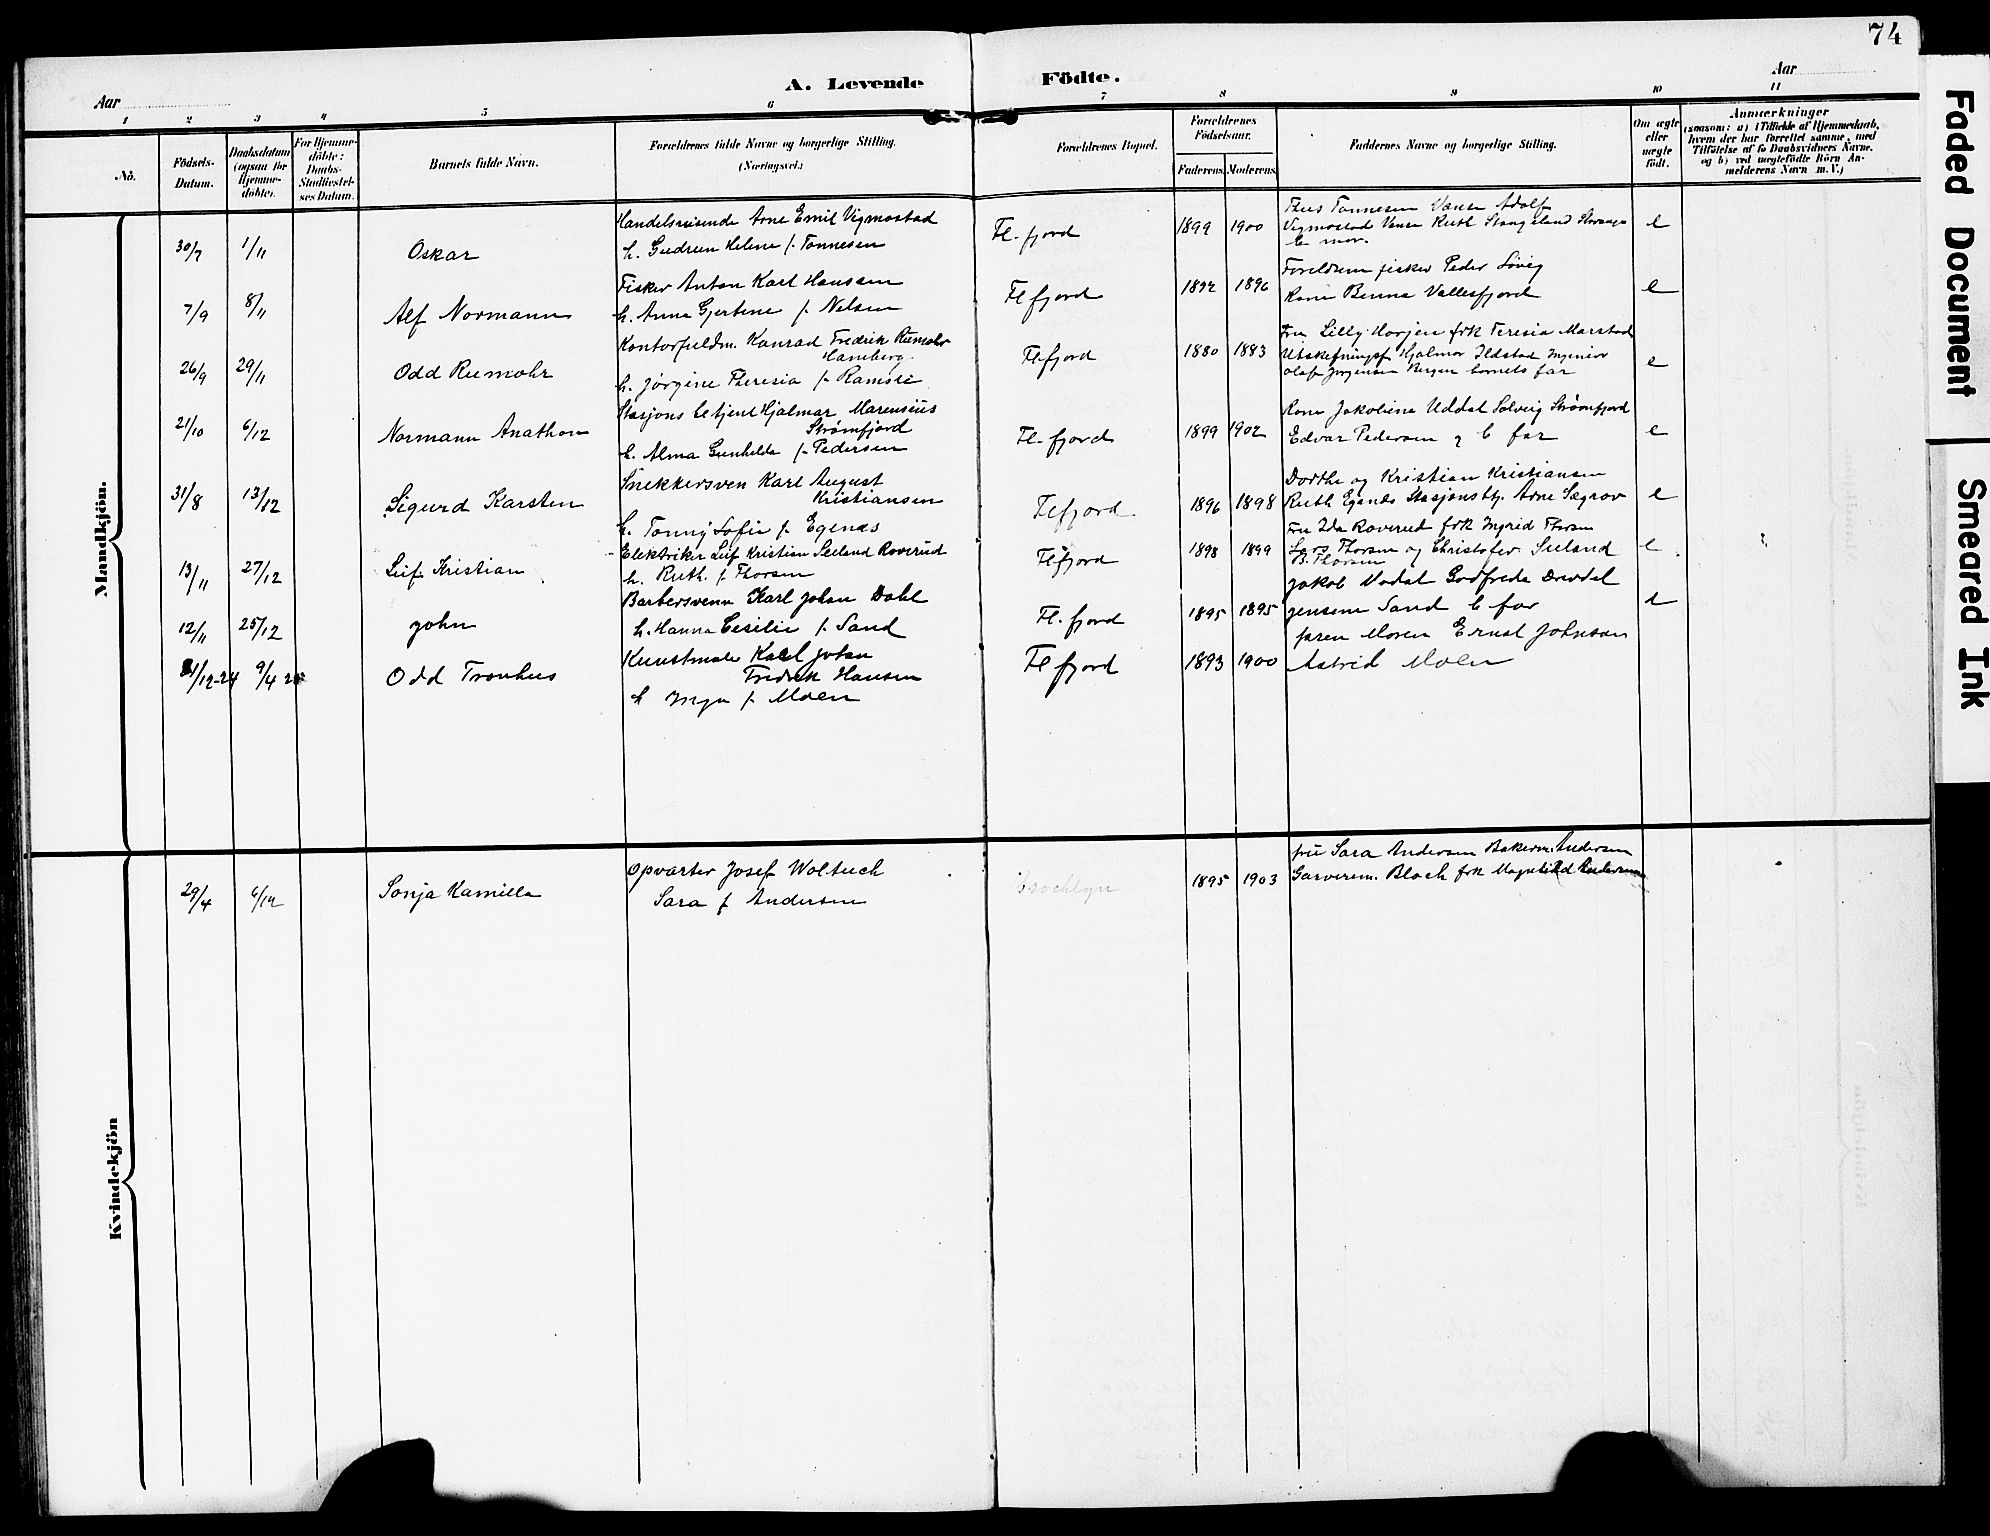 74
A. Levende Födte.
Aar
Aar
1 2 3 4 5 6 7 8 9 10 11
No.
Födsels-Datum.
Daabsdatum (ogsaa for Hjemmedöbte).
For Hjemmedöbte: Daabs-Stadfæstelses Datum.
Barnets fulde Navn.
Forældrenes fulde Navne og borgerlige Stilling.
(Næringsvei.)
Forældrenes Bopæl.
Forældrenes Födselsaar.
Faderens. Moderens.
Faddernes Navne og borgerlige Stilling.
Om ægte eller uægte födt.
Anmærkninger
(saasom: a) i Tilfælde af Hjemmedaab, hvem der har forrettet samme, med Tilföielse af to Daabsvidners Navne. og b) ved uægtefödte Börn Anmelderens Navn m. V.)
Mandkjön.
Handelsreisende Arne Emil Vigmostad
Thus Tonnesen Vanse Adolf
30/7 1/11 Oskar h. Gudrun Helene f. Tonnesen Fl.fjord 1899 1900 Vigmostad Vanse Ruth Stangeland Stavanger e
b. mor.
Fisker Anton Karl Hanssen
Foreldrene fisker Peder Lovig
7/9 8/11 Alf Normann h. Anna Gjertine f. Nelsen Flfjord 1892 1896 Kone Benna Vallesfjord e
Kontorfuldm. Konrad Fredrik Rumohr
Hamberg.
Fru Lilly Horjen frk Teresia Marstad
26/9 29/11 Odd Rumohr h. Jørgine Theresia f. Ramsli Flfjord 1880 1883 Hjalmar Ildstad Ingeniør e
Olaf Jørgensen Bergen barnets far
Stasjons betjent Hjalmar Marensius
Strømfjord
Kone Jakobine Uddal Solveig Strømfjord
21/10 6/12 Normann Anathon h. Alma Gunhilda f. Pedersen Fl.fjord 1899 1902 Edvar Pedersen og b far e
Snekkersven Karl August
Kristiansen
Dorthe og Kristian Kristiansen
31/8 13/12 Sigurd Karsten h. Tonny Sofie f. Egenæs Flfjord 1896 1898 Ruth Egenes Stasjonsbtj. Arne Sægrov e
Elektriker Leif Kristian Seeland Roverud
Fru Ida Roverud frk Ingrid Thorsen
13/11 27/12 Leif Kristian h. Ruth. f. Thorsen Flfjord 1898 1899 Lars Thorsen og Christofer Seeland e
B. Thorsen
Barbersvenn Karl Johan Dahl
Jakob Vadal Godfreda
12/11 25/12 John h. Hanna Cesilie f. Sand Fl.fjord 1895 1895 Jensene Sand b far e
Kunstmaler Karl Johan
Fredrik Hansen
Moren Ernst Johnson
31/12-24 9/4 25 Odd Tronhus h Inga f. Moen Flfjord 1893 1900 Astrid Moen
Kvindekjön
Opvarter Josef Woltuch
fru Sara Andersen Bakerm. Andersen
29/4 6/12 Sonja Kamilla Sara f Andersen Brooklyn 1895 1903 Garverem. Bloch frk Magnhild Andersen
Faded Document
Smeared Ink